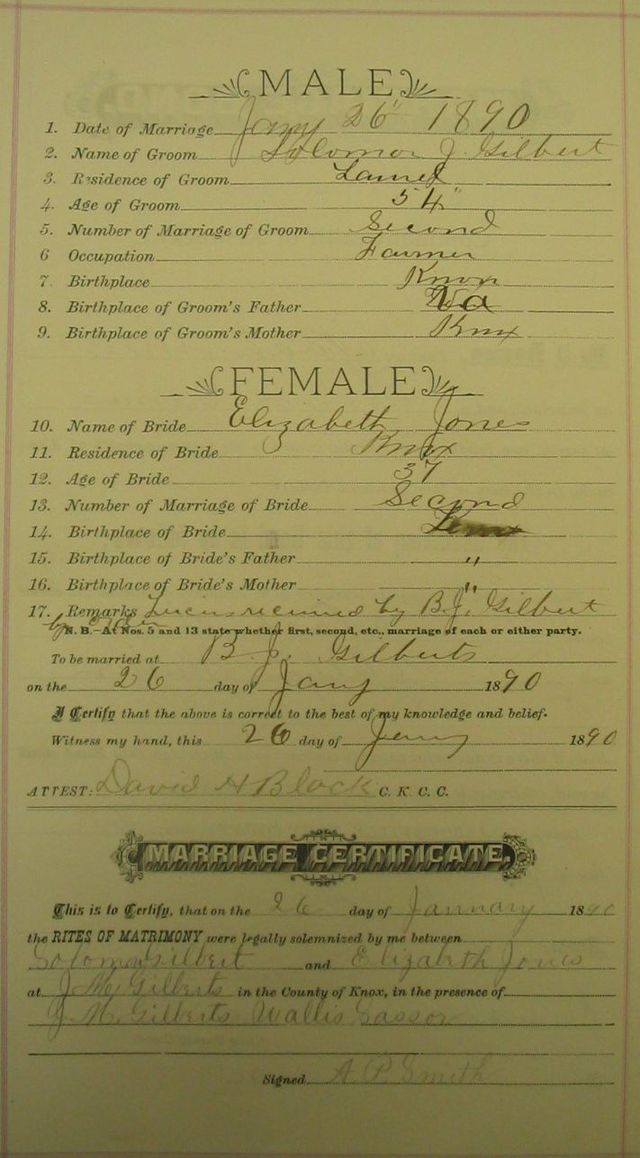 MALE
1. Date of Marriage Jany 26" 1890
2. Name of Groom Solomon J. Gilbert
3. Residence of Groom Laurel
4. Age of Groom 54"
5. Number of Marriage of Groom Second
6 Occupation Farmer
7. Birthplace Knox
8. Birthplace of Groom's Father Va
9. Birthplace of Groom's Mother Knx
FEMALE
10. Name of Bride Elizabeth Jones
11. Residence of Bride Knox
12. Age of Bride 37
13. Number of Marriage of Bride Second
14. Birthplace of Bride
15. Birthplace of Bride's Father "
16. Birthplace of Bride's Mother "
17. Remarks received by B.J. Gilbert
N. B.—At Nos. 5 and 13 state whether first, second, etc., marriage of each or either party.
To be married at B J. Gilberts
on the 26 day of Jany 1890
I Certify that the above is correct to the best of my knowledge and belief.
Witness my hand, this 26 day of Jany 1890
ATTEST: David H Black C. K. C. C.
MARRIAGE CERTIFICATE.
This is to Certify, that on the 26 day of January 1890
the RITES OF MATRIMONY were legally solemnized by me between
Solomon Gilbert and Elizabeth Jones
at J M Gilberts in the County of Knox, in the presence of
J M. Gilberts Wallis Sasser
Signed A. P. Smith